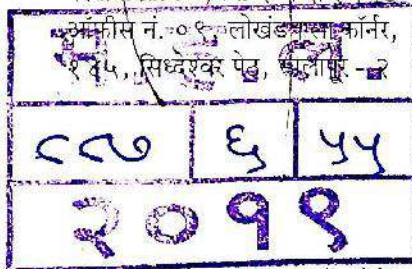 ऑफीस नं. ०९, लोखंडवाला कॉर्नर,
१६५, सिध्देश्वर पेठ, सोलापूर - २
८८७ ६ ५५
२०१९